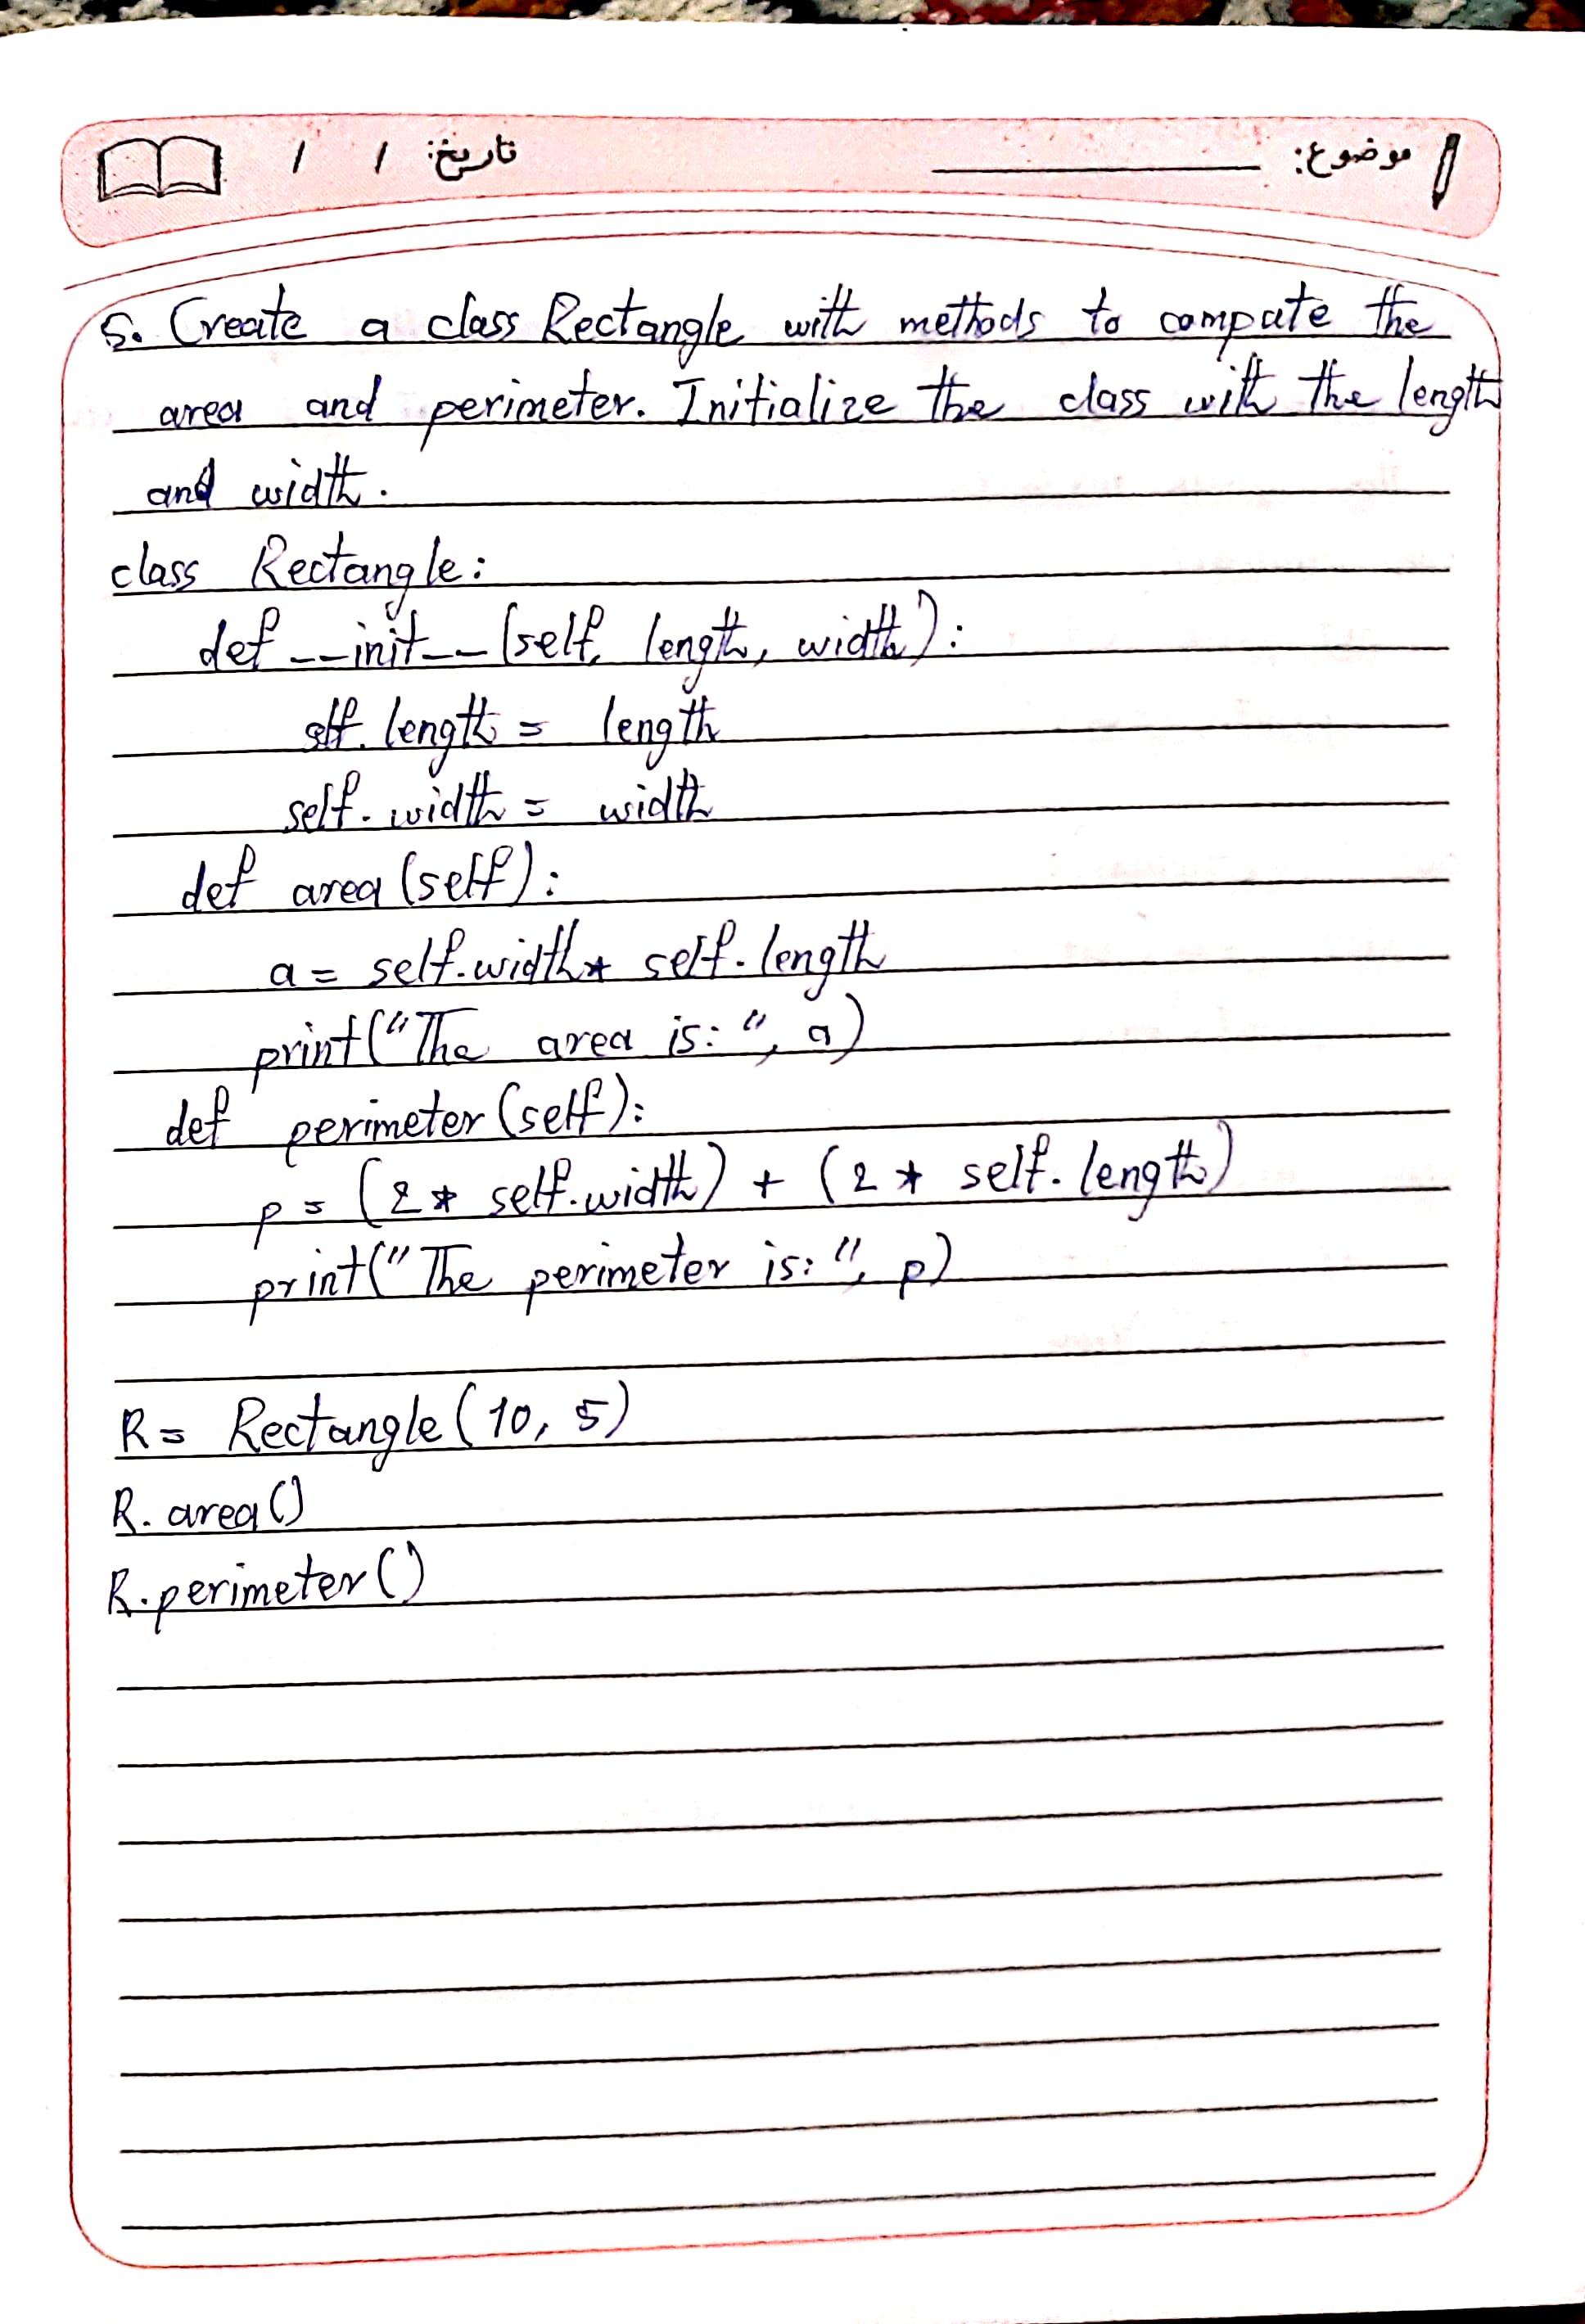 موضوع: تاریخ: / /
5. Create a class Rectangle with methods to compute the
area and perimeter. Initialize the class with the length
and width.
class Rectangle:
def __init__(self, length, width):
self.length = length
self.width = width
def area(self):
a = self.width * self.length
print("The area is: ", a)
def perimeter(self):
p = (2 * self.width) + (2 * self.length)
print("The perimeter is: ", p)
R = Rectangle(10, 5)
R.area()
R.perimeter()